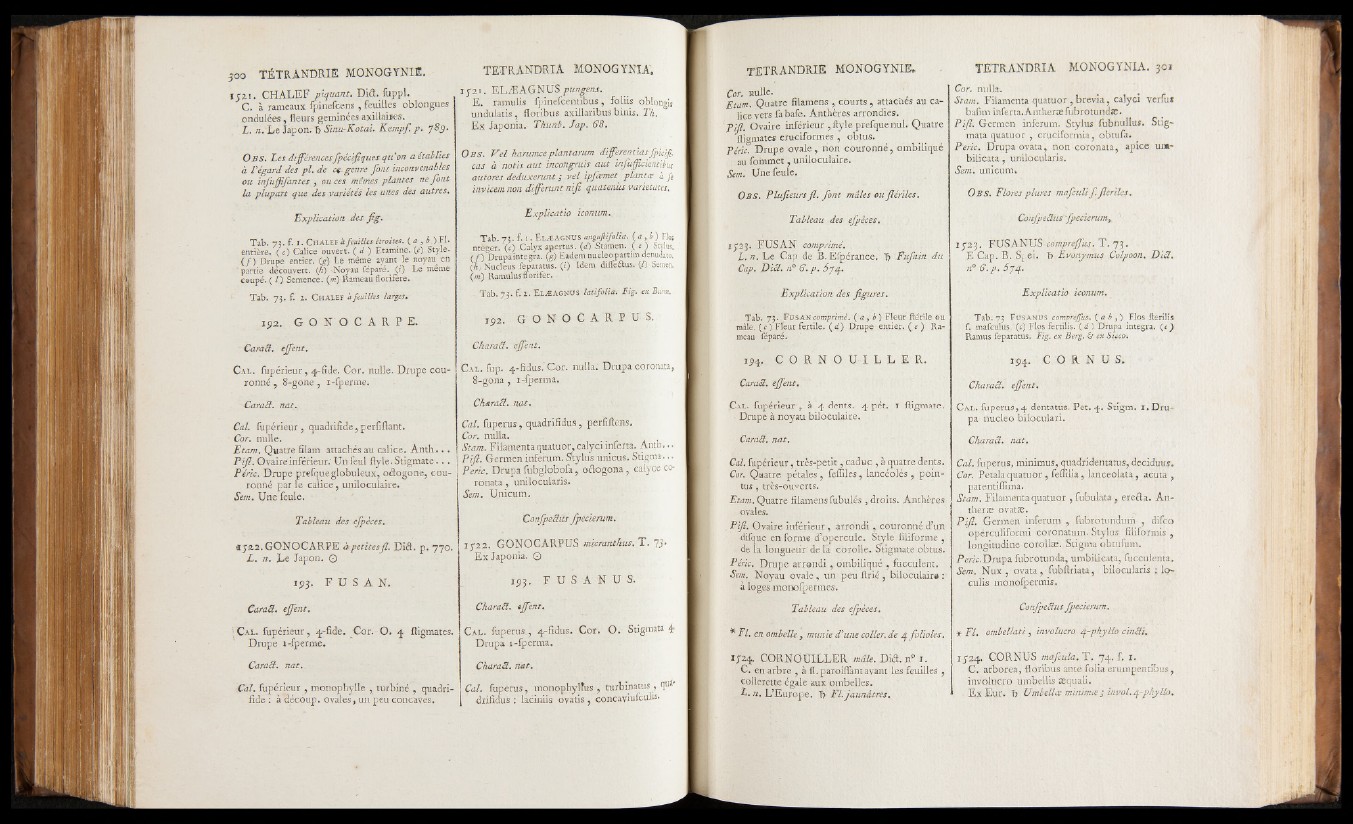 300 TÉTRANDRIE MONOGYNIE.
1521. CHALEF piquant. Dict. suppl.
C. à rameaux spinescens, feuilles oblongues
ondulées, fleurs geminées axillaires.
L. n. Le Japon. ♄ Sinu-Kotai. Kempf. p. 789.
OBS. Les différences spécifiques qu'on a établies
à l'égard des pl. de ce genre sont inconvenables
ou insuffisantes, ou ces mêmes plantes ne sont
la plupart que des variétés les unes des autres.
Explication des fig.
Tab. 73. f. 1. CHALEF à feuilles étroites. (a, b) Fl.
entière. (c) Calice ouvert. (d) Etamine. (e) Style.
(f) Drupe entier. (g) Le même ayant le noyau en
partie découvert. (h) Noyau séparé. (i) Le même
coupé. (l) Semence. (m) Rameau florifère.
Tab. 73. f. 2. CHALEF à feuilles larges.
192. GONOCARPE.
Caract. essent.
CAL. supérieur, 4-fide. Cor. nulle. Drupe cou-
ronné, 8-gone, 1-sperme.
Caract. nat.
Cal. supérieur, quadrifide, persistant.
Cor. nulle.
Etam. Quatre filam. attachés au calice. Anth...
Pist. Ovaire inférieur. Un seul style. Stigmate...
Péric. Drupe presque globuleux, octogone, cou-
ronné par le calice, uniloculaire.
Sem. Une seule.
Tableau des espèces.
1522. GONOCARPE à petites fl. Dict. p. 770.
L. n. Le Japon. ☉
193. FUSAN.
Caract. essent.
CAL. supérieur, 4-fide. Cor. O. 4 stigmates.
Drupe 1-sperme.
Caract. nat.
Cal. supérieur, monophylle, turbiné, quadri-
fide : à découp. ovales, un peu concaves.
TETRANDRIA MONOGYNIA.
1521. ELÆAGNUS pungens.
E. ramulis spinescentibus, foliis oblongis
undulatis, floribus axillaribus binis. Th.
Ex Japonia. Thunb. Jap. 68.
OBS. Vel harumce plantarum differentias specifi-
cas à notis aut incongruis aut insufficientibus
autores deduxerunt; vel ipsæmet plantæ à se
invicem non differunt nisi quatenus varietates.
Explicatio iconum.
Tab. 73. f. 1. ELÆAGNUS angustifolia. (a, b) Flos
nteger. (c) Calyx apertus. (d) Stamen. (e) Stylus.
(f) Drupa integra. (g) Eadem nucleo partim denudato.
(h) Nucleus separatus. (i) Idem dissectus. (l) Semen.
(m) Ramulus florifer.
Tab. 73. f. 2. ELÆAGNUS latifolia. Fig. ex Burm.
192. GONOCARPUS.
Charact. essent.
CAL. sup. 4-fidus. Cor. nulla. Drupa coronata,
8-gona, 1-sperma.
Charact. nat.
Cal. superus, quadrifidus, persistens.
Cor. nulla.
Stam. Filamenta quatuor, calyci inserta. Anth...
Pist. Germen inferum. Stylus unicus. Stigma...
Peric. Drupa subglobosa, octogona, calyce co-
ronata, unilocularis.
Sem. Unicum.
Conspectus specierum.
1522. GONOCARPUS micranthus. T. 73.
Ex Japonia. ☉
193. FUSANUS.
Charact. essent.
CAL. superus, 4-fidus. Cor. O. Stigmata 4.
Drupa 1-sperma.
Charact. nat.
Cal. superus, monophyllus, turbinatus, qua-
drifidus : laciniis ovatis, concaviusculis.
TETRANDRIE MONOGYNIE.
Cor. nulle.
Etam. Quatre filamens, courts, attachés au ca-
lice vers sa base. Anthères arrondies.
Pist. Ovaire inférieur, style presque nul. Quatre
stigmates cruciformes, obtus.
Péric. Drupe ovale, non couronné, ombiliqué
au sommet, uniloculaire.
Sem. Une seule.
OBS. Plusieurs fl. sont mâles ou stériles.
Tableau des espèces.
1523. FUSAN comprimé.
L. n. Le Cap de B. Espérance. ♄ Fusain du
Cap. Dict. n° 6. p. 574.
Explication des figures.
Tab. 73. FUSAN comprimé. (a, b) Fleur stérile ou
mâle. (c) Fleur fertile. (d) Drupe entier. (e) Ra-
meau séparé.
194. CORNOUILLER.
Caract. essent.
CAL. supérieur, à 4 dents. 4 pét. 1 stigmate.
Drupe à noyau biloculaire.
Caract. nat.
Cal. supérieur, très-petit, caduc, à quatre dents.
Cor. Quatre pétales, sessiles, lancéolés, poin-
tus, très-ouverts.
Etam. Quatre filamens subulés, droits. Anthères
ovales.
Pist. Ovaire inférieur, arrondi, couronné d'un
disque en forme d'opercule. Style filiforme,
de la longueur de la corolle. Stigmate obtus.
Péric. Drupe arrondi, ombiliqué, succulent.
Sem. Noyau ovale, un peu strié, biloculaire :
à loges monospermes.
Tableau des espèces.
* Fl. en ombelle, munie d'une coller. de 4 folioles.
1524. CORNOUILLER mâle. Dict. n° 1.
C. en arbre, à fl. paroissant avant les feuilles,
collerette égale aux ombelles.
L. n. L'Europe. ♄ Fl. jaunâtres.
TETRANDRIA MONOGYNIA. 301
Cor. nulla.
Stam. Filamenta quatuor, brevia, calyci versus
basim inserta. Antheræ subrotundæ.
Pist. Germen inferum. Stylus subnullus. Stig-
mata quatuor, cruciformia, obtusa.
Peric. Drupa ovata, non coronata, apice um-
bilicata, unilocularis.
Sem. unicum.
OBS. Flores plures masculi s. steriles.
Conspectus specierum,
1523. FUSANUS compressus. T. 73.
E Cap. B. Spei. ♄ Evonymus Colpoon. Dict.
n° 6. p. 574.
Explicatio iconum.
Tab. 73 FUSANUS compressus. (a b,) Flos sterilis
s. masculus. (c) Flos fertilis. (d) Drupa integra. (e)
Ramus separatus. Fig. ex Berg. & ex Sicco.
194. CORNUS.
Charact. essent.
CAL. superus, 4 dentatus. Pet. 4. Stigm. 1. Dru-
pa nucleo biloculari.
Charact. nat.
Cal. superus, minimus, quadridentatus, deciduus.
Cor. Petala quatuor, sessilia, lanceolata, acuta,
patentissima.
Stam. Filamenta quatuor, subulata, erecta. An-
theræ ovatæ.
Pist. Germen inferum, subrotundum, disco
operculiformi coronatum. Stylus filiformis,
longitudine corollæ. Stigma obtusum.
Peric. Drupa subrotunda, umbilicata, succulenta.
Sem. Nux, ovata, substriata, bilocularis : lo-
culis monospermis.
Conspectus specierum.
* Fl. ombellati, involucro 4-phyllo cincti.
1524. CORNUS mascula. T. 74. f. 1.
C. arborea, floribus ante folia erumpentibus,
involucro umbellis æquali.
Ex Eur. ♄ Umbellæ minimæ; invol. 4-phyllo.